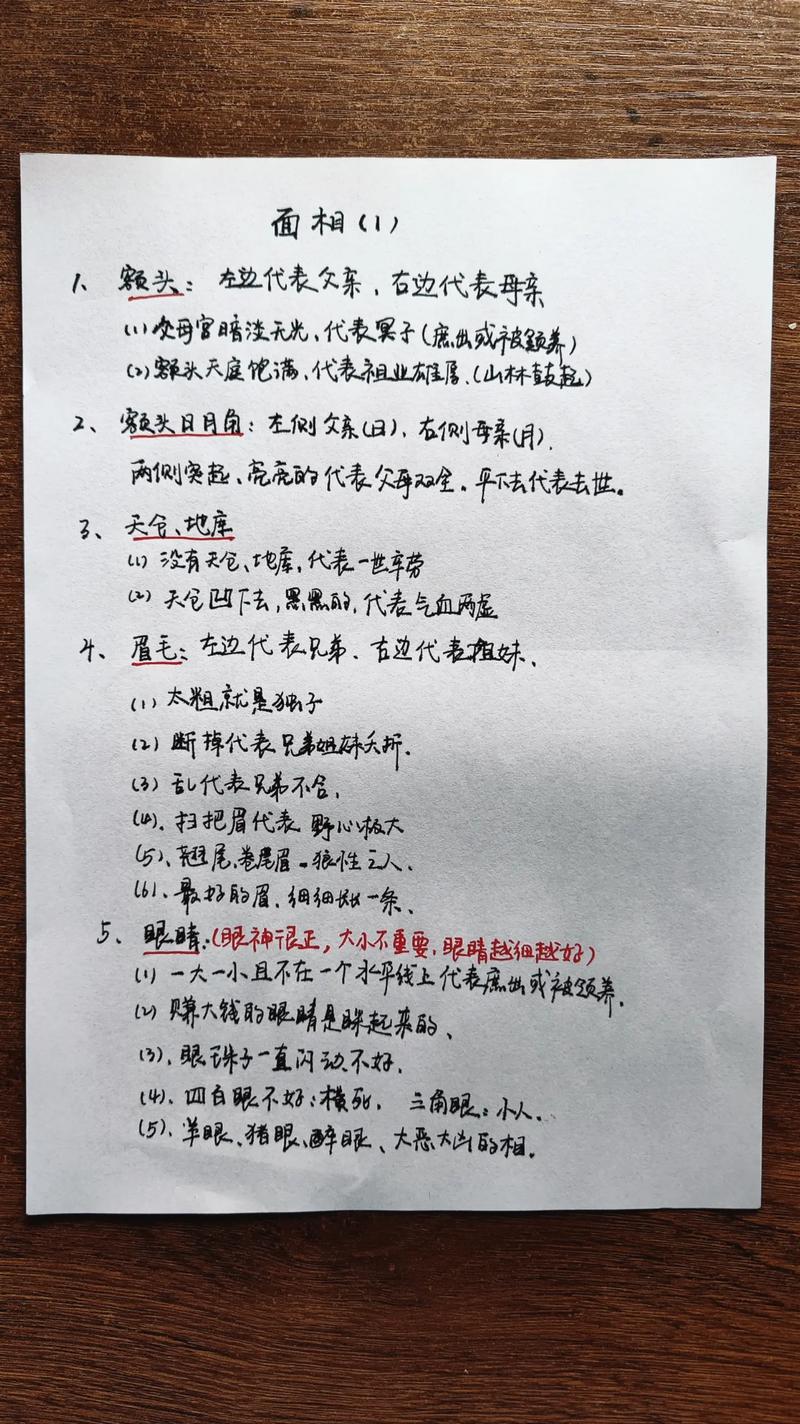 面相(1)
1、额头：左边代表父亲、右边代表母亲
(1)父母宫暗淡无光、代表冥子(庶出或被领养)
(2)额头天庭饱满、代表祖业雄厚、(山林鼓起)
2、额头日月角：左侧父亲(日)、右侧母亲(月).
两侧突起、亮亮的代表父母双全、平下去代表去世。
3、天仓、地库
(1)没有天仓、地库,代表一世辛劳
(2)天仓凹下去,黑黑的,代表气血两虚
4、眉毛：左边代表兄弟、右边代表姐妹、
(1)太粗就是独子
(2)断掉代表兄弟姐妹夭折.
(3)乱代表兄弟不合.
(4).扫把眉代表 野心极大
(5)、翘尾、卷尾眉。狼性之人.
(6)、最好的眉、细细长长一条、
5、眼睛：(眼神很正,大小不重要,眼睛越细越好)
(1)一大一小且不在一个水平线上代表庶出或被领养.
(2)赚大钱的眼睛是眯起来的、
(3).眼珠子一直闪动不好.
(4).四白眼不好：横死. 三角眼：小人.
(5)、羊眼、猪眼、醉眼、大恶大凶的相.